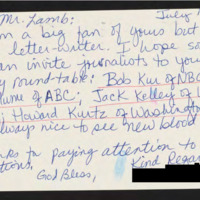 Mr. Lamb: July
m a big fan of yours but
letter-writer. I hope so
an invite journalists to you
y round-table: Bob Kur of NBC
ume of ABC; Jack Kelley of U
; Howard Kurtz of Washington
lways nice to see new blood
nks for paying attention to
tions,
Kind Regar
God Bless,